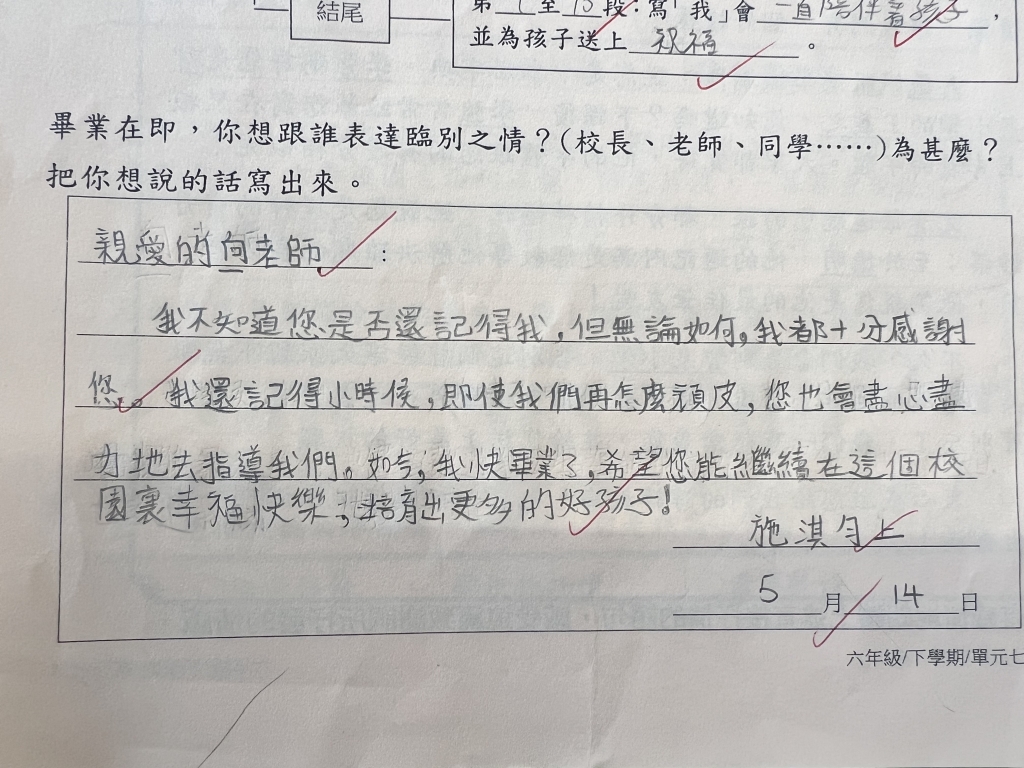 結尾
至13段：寫「我」會一直陪伴着孩子，
並為孩子送上祝福。
畢業在即，你想跟誰表達臨別之情？(校長、老師、同學……)為甚麼？
把你想說的話寫出來。
親愛的向老師：
我不知道您是否還記得我，但無論如何，我都十分感謝
您。我還記得小時候，即使我們再怎麼頑皮，您也會盡心盡
力地去指導我們。如今，我快畢業了，希望您能繼續在這個校
園裏幸福快樂，培育出更多的好孩子！
施淇勻上
5月14日
六年級/下學期/單元七